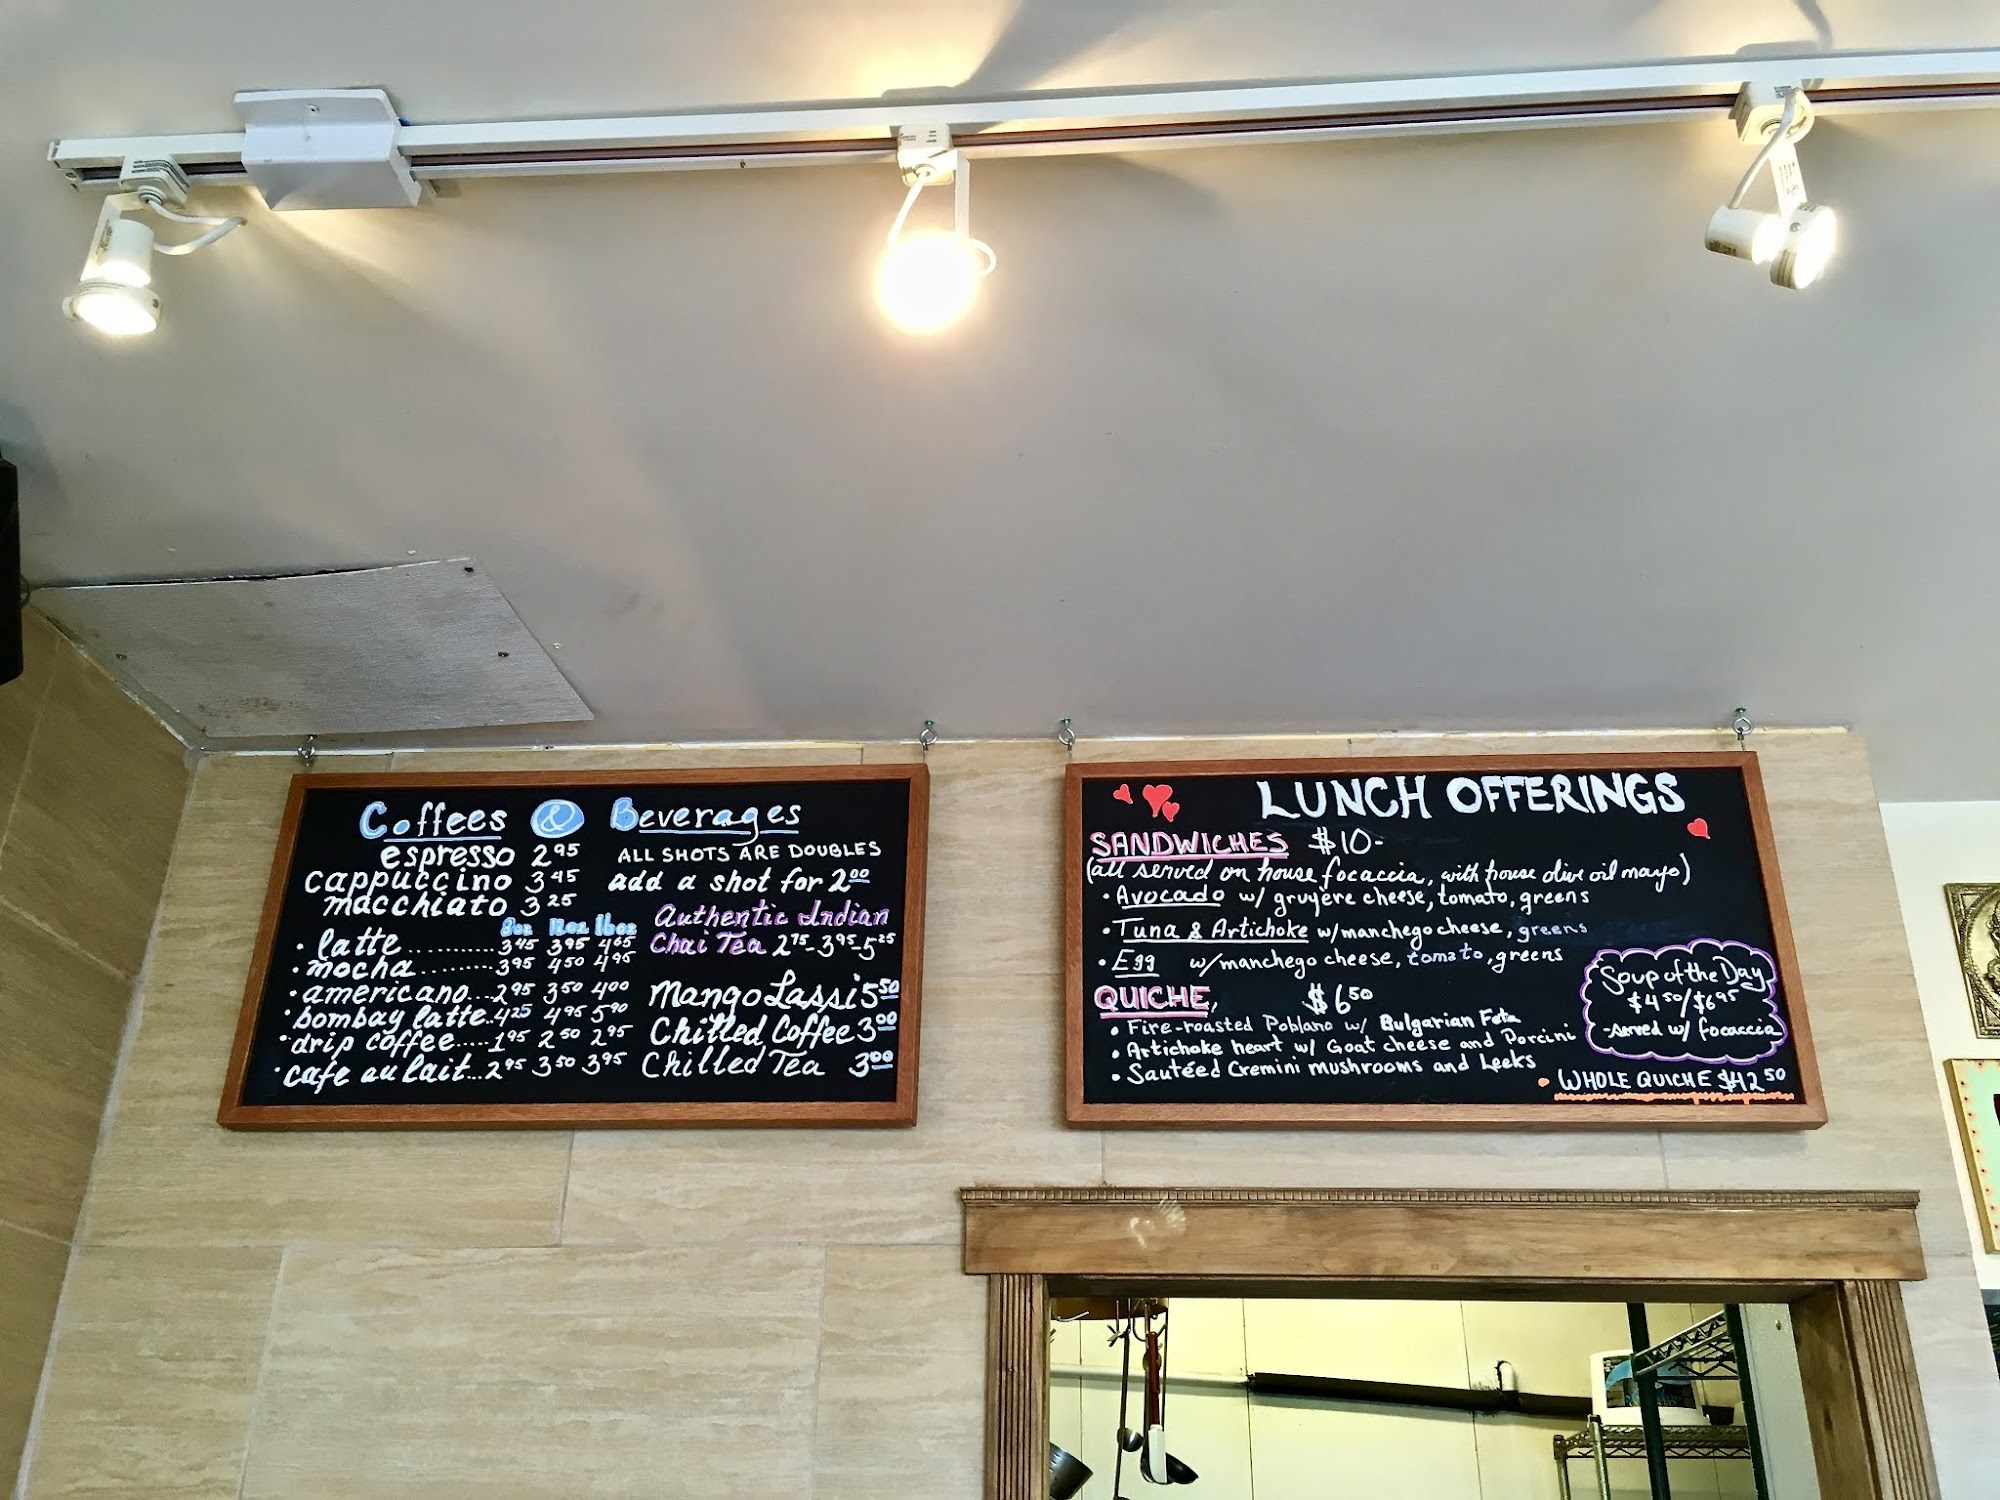 Coffees & Beverages
espresso 2.95
cappuccino 3.45
macchiato 3.25
8oz 12oz 16oz
• latte.......... 3.45 3.95 4.65
• mocha......... 3.95 4.50 4.95
• americano.... 2.95 3.50 4.00
• bombay latte.. 4.25 4.95 5.90
• drip coffee..... 1.95 2.50 2.95
• café au lait... 2.95 3.50 3.95
ALL SHOTS ARE DOUBLES
add a shot for 2.00
Authentic Indian
Chai Tea 2.75-3.95-5.25
Mango Lassi 5.50
Chilled Coffee 3.00
Chilled Tea 3.00
LUNCH OFFERINGS
SANDWICHES $10-
(all served on house focaccia, with house olive oil mayo)
• Avocado w/ gruyère cheese, tomato, greens
• Tuna & Artichoke w/ manchego cheese, greens
• Egg w/ manchego cheese, tomato, greens
QUICHE, $6.50
• Fire-roasted Poblano w/ Bulgarian Feta
• Artichoke heart w/ Goat cheese and Porcini
• Sautéed Cremini mushrooms and Leeks
Soup of the Day
$4.50/$6.95
-served w/ focaccia
• WHOLE QUICHE $42.50